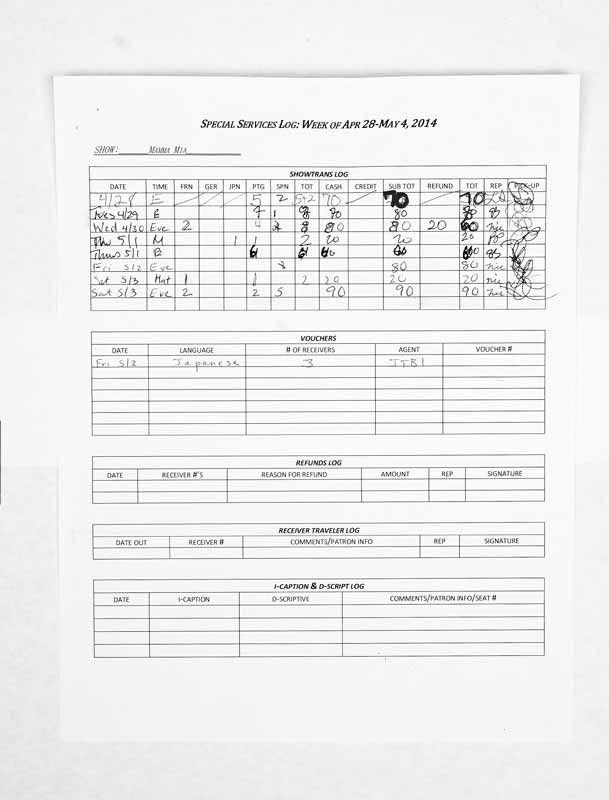 SPECIAL SERVICES LOG: WEEK OF APR 28-MAY 4, 2014
SHOW: MAMMA MIA
SHOWTRANS LOG
DATE TIME FRN GER JPN PTG SPN TOT CASH CREDIT SUB TOT REFUND TOT REP PICK-UP
4/28 E 5 2 5+2 70 70 70
Tues 4/29 E 7 1 8 80 80
Wed 4/30 Eve 2 4 8 80 80 20 60 nic
Thu 5/1 M 1 1 2 20 20 20
Thurs 5/1 E 6 6 60 60 60
Fri 5/2 Eve 8 80 80 nic
Sat 5/3 Mat 1 1 2 20 20 20 nic
Sat 5/3 Eve 2 2 5 90 90 90 nic
VOUCHERS
DATE LANGUAGE # OF RECEIVERS AGENT VOUCHER #
Fri 5/2 Japanese 3 JTBI
REFUNDS LOG
DATE RECEIVER #'S REASON FOR REFUND AMOUNT REP SIGNATURE
RECEIVER TRAVELER LOG
DATE OUT RECEIVER # COMMENTS/PATRON INFO REP SIGNATURE
I-CAPTION & D-SCRIPT LOG
DATE I-CAPTION D-SCRIPTIVE COMMENTS/PATRON INFO/SEAT #